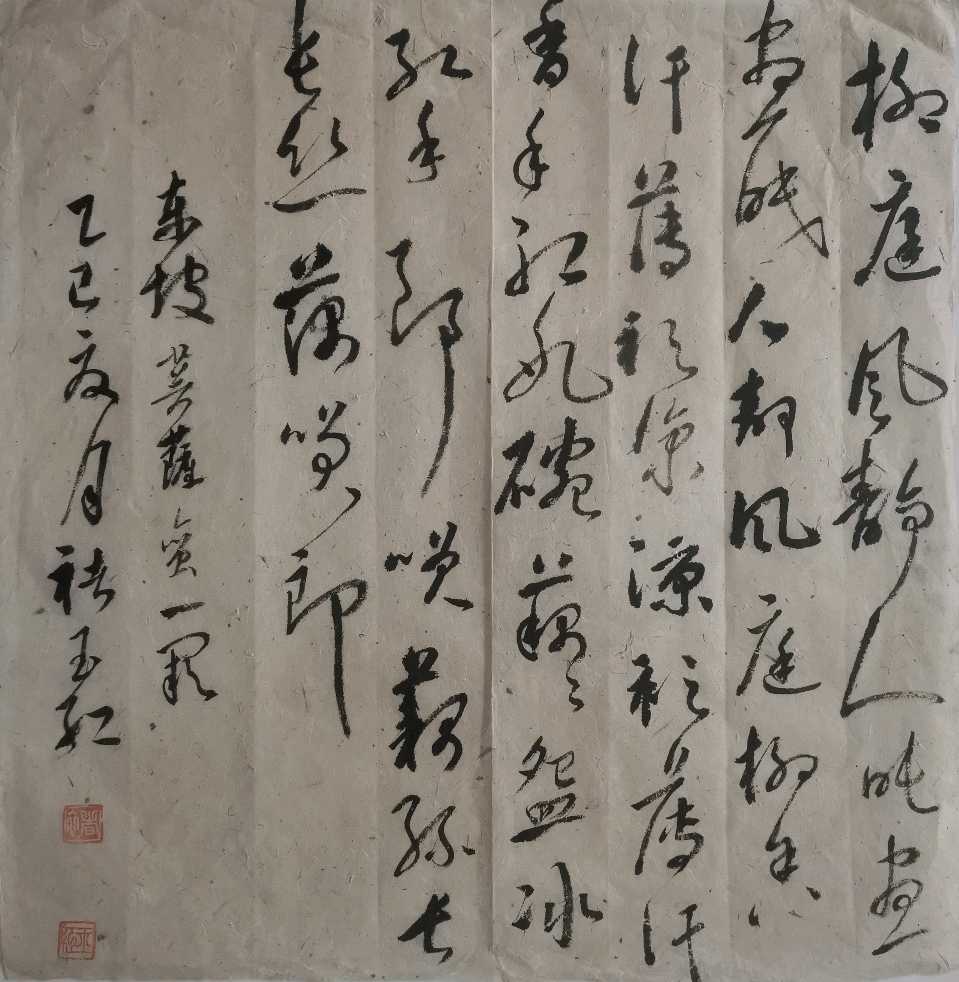 柳庭风静人眠昼
昼眠人静风庭柳香
汗薄衫凉凉衫薄汗
香手红冰碗藕〻盌冰
红手郎笑藕丝长
长丝藕笑郎
东坡菩萨蛮一阕
乙巳夏月褚玉红